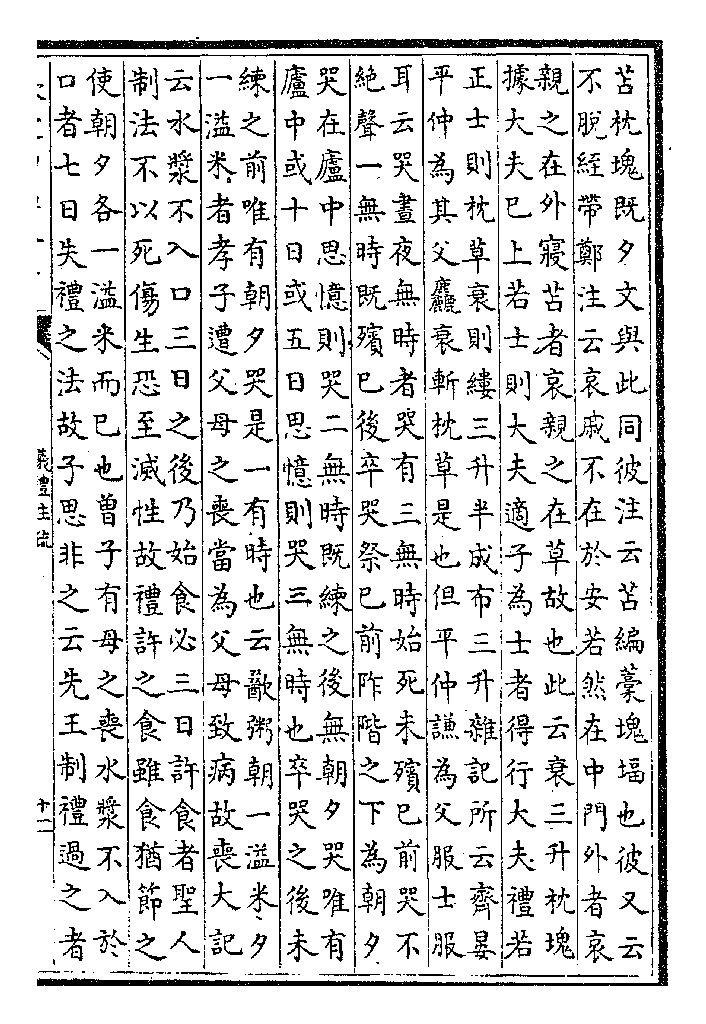 苫枕塊既夕文與此同彼注云苫編藁塊堛也彼又云
不脫絰帶鄭注云哀戚不在於安若然在中門外者哀
親之在外寢苫者哀親之在草故也此云衰三升枕塊
據大夫已上若士則大夫適子為士者得行大夫禮若
正士則枕草衰則縷三升半成布三升雜記所云齊晏
平仲為其父麤衰斬枕草是也但平仲謙為父服士服
耳云哭晝夜無時者哭有三無時始死未殯已前哭不
絶聲一無時既殯已後卒哭祭已前阼階之下為朝夕
哭在廬中思憶則哭二無時既練之後無朝夕哭唯有
廬中或十日或五日思憶則哭三無時也卒哭之後未
練之前唯有朝夕哭是一有時也云歠粥朝一溢米夕
一溢米者孝子遭父母之喪當為父母致病故喪大記
云水漿不入口三日之後乃始食必三日許食者聖人
制法不以死傷生恐至滅性故禮許之食雖食猶節之
使朝夕各一溢米而已也曾子有母之喪水漿不入於
口者七日失禮之法故子思非之云先王制禮過之者
儀禮註疏
十二